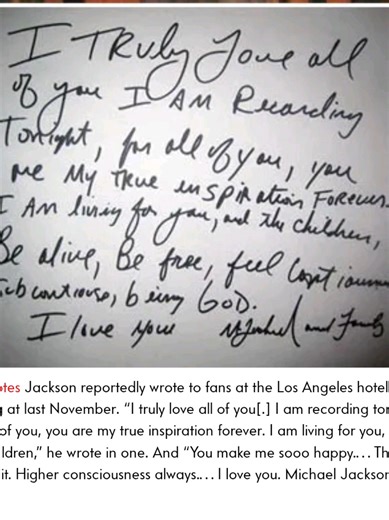 I TRuly Love all
of you I AM Recording
Tonight, for all of you, you
me My TRue inspiration Forever.
I AM living for you, and The children,
Be alive, Be free, feel
being GOD.
I love you and Family
otes Jackson reportedly wrote to fans at the Los Angeles hotel
g at last November. “I truly love all of you[.] I am recording to
of you, you are my true inspiration forever. I am living for you,
ldren,” he wrote in one. And “You make me sooo happy.… Th
it. Higher consciousness always.… I love you. Michael Jackson